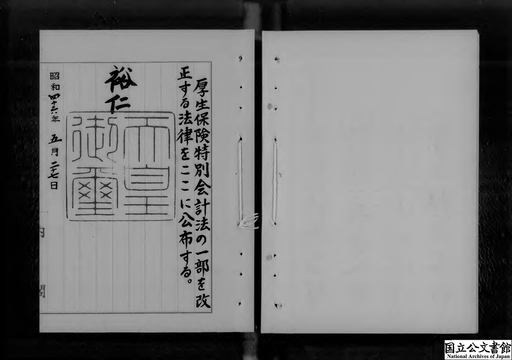 厚生保険特別会計法の一部を改
正する法律をここに公布する。
裕仁
天皇
御璽
昭和四十六年五月二十七日
内閣
国立公文書館
National Archives of Japan